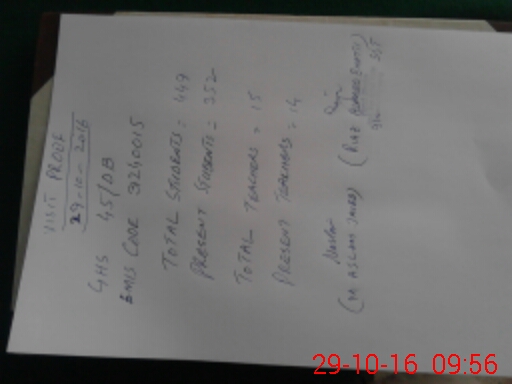 VISIT PROOF
29-10-2016
GHS 45/DB
EMIS CODE 31240015
TOTAL STUDENTS = 449
PRESENT STUDENTS = 352
TOTAL TEACHERS = 15
PRESENT TEACHERS = 14
(M ASLAM
29-10-16 09:56